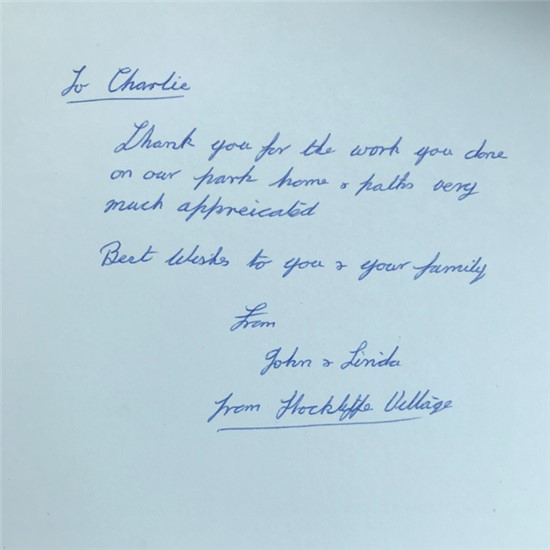 To Charlie
Thank you for the work you done
on our park home & paths very
much appreicated
Best Wishes to you & your family
From
John & Linda
from Hockliffe Village